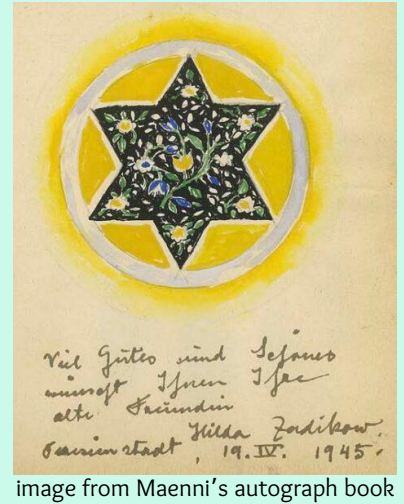 Viel Gutes und Schönes
wünscht Ihnen Ihre
alte Freundin
Hilda Zadikow.
Theresienstadt, 19.IV. 1945.
image from Maenni's autograph book